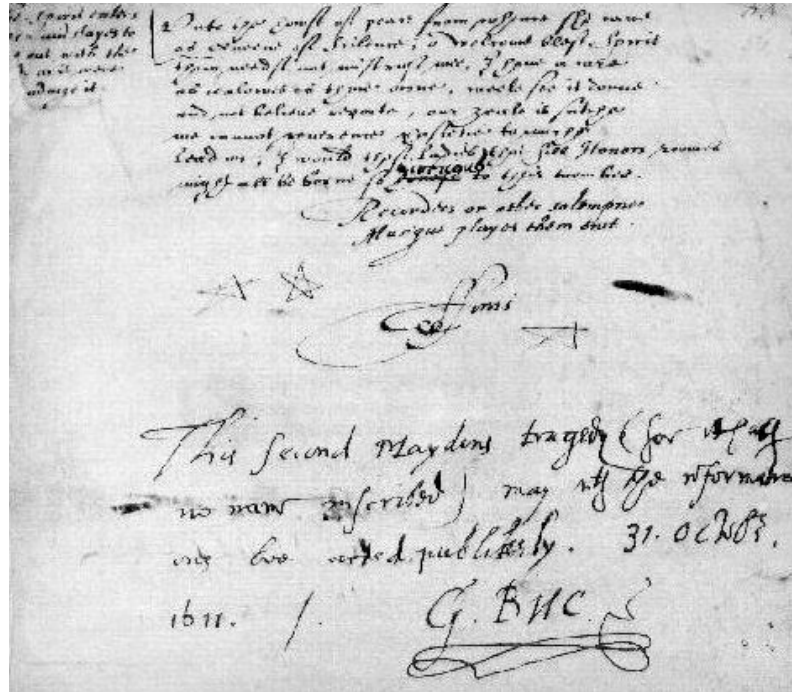 spirit enters
and stayes to
out with the
as it were
unto the howse of peace from whence she came
as Queene of silence, o welcome blest spirit
thou needst not mistrust me, I have a care
as iealous as thine owne, weele see it donne
and not beleive reporte, our zeale is suche
we cannot reverence chastetie to muche
lead on, I would those ladies that fill Honors roomes
might all be borne so vertuous to their tombes.
Recorders or other solempne
Musique playes them owt.
ffinis
This second Maydens tragedy (for it hath
no name inscribed) may wth the reformations
bee acted publikely. 31. octobr.
1611. /. G. BUC.